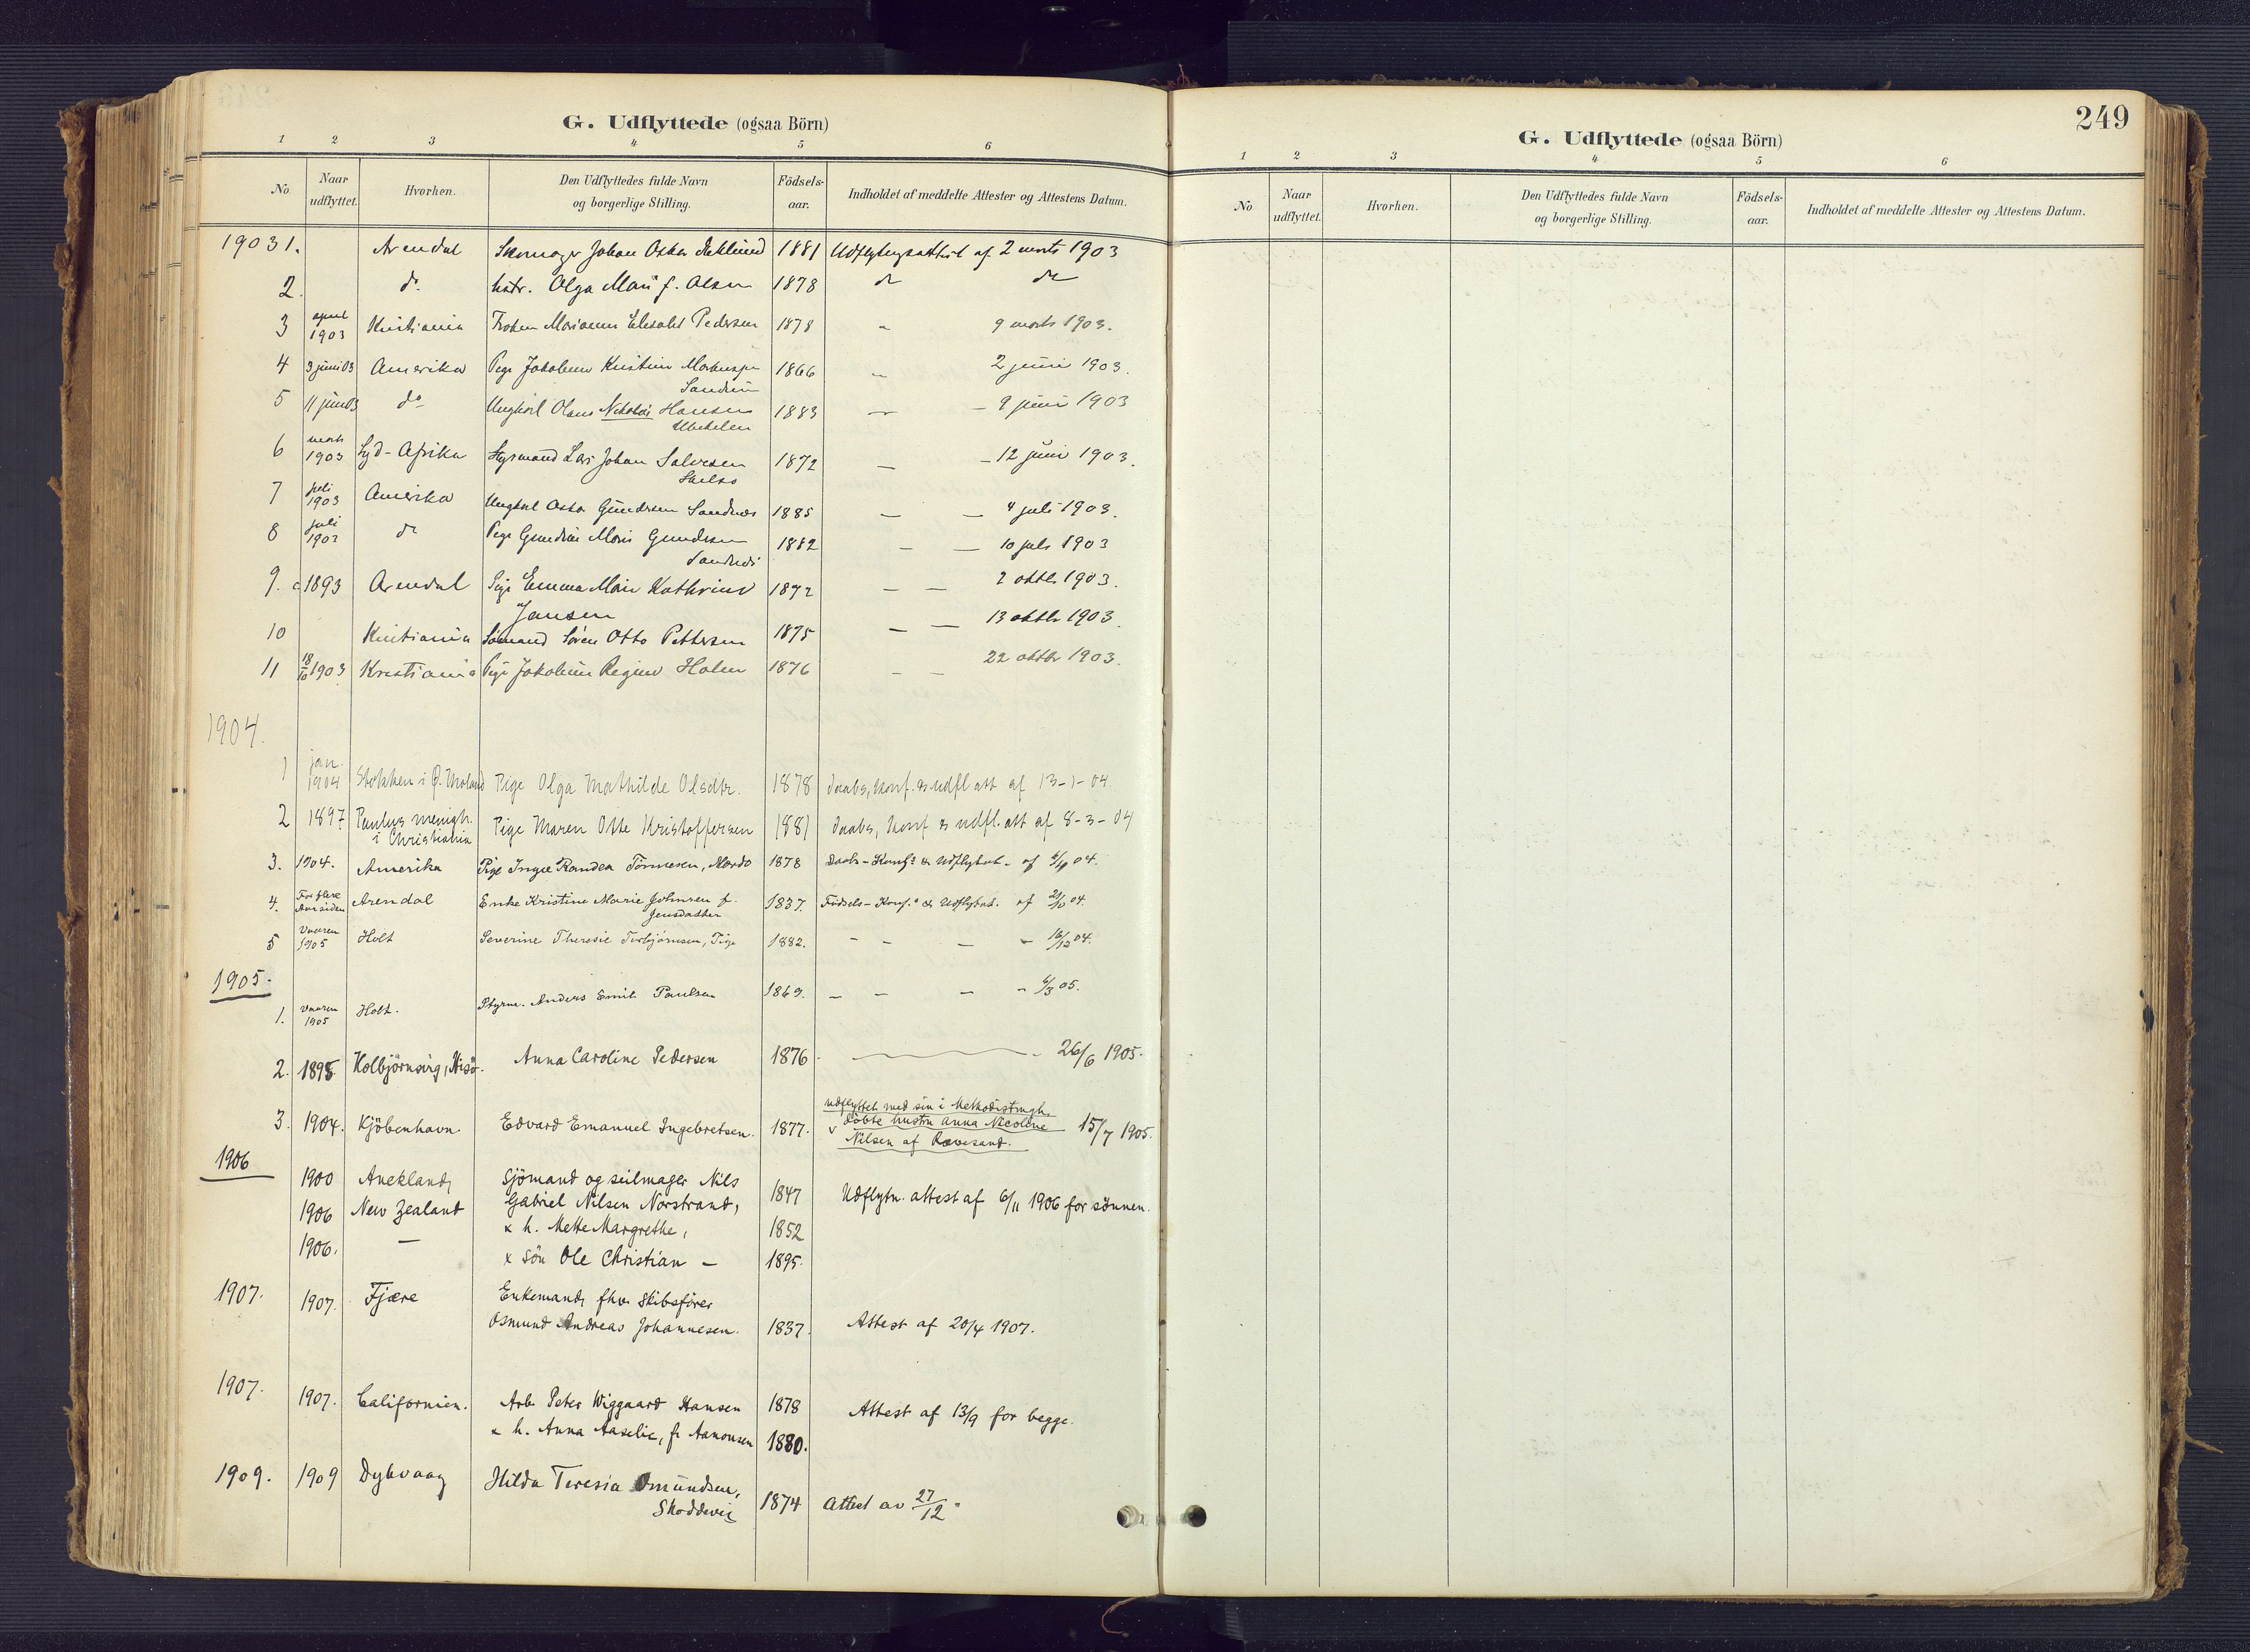 G. Udflyttede (ogsaa Börn)
1 2 3 4 5 6
No Naar udflyttet. Hvorhen. Den Udflyttedes fulde Navn og borgerlige Stilling. Födsels-aar. Indholdet af meddelte Attester og Attestens Datum.
1903 1. Arendal Skomager Johan Oskar 1881 Udflytngsattest af 2 marts 1903
2. do. hstr. Olga Marie f. Olsen 1878 do do
3 april 1903 Kristiania Frøken Marianne Elisabet Pedersen 1878 " 9 marts 1903.
4 3 juni 03 Amerika Pige Jakobine Kristine 1866 " 2 juni 1903.
Sandum
5 11 juni 03 do Ungkarl Olaus Nikolai Hansen 1883 — - 9 juni 1903
6 marts 1903 Syd-Afrika Styrmand Lars Johan Salvesen 1872 — - 12 juni 1903.
Skilso
7 juli 1903 Amerika Ungkarl Oskar Gundersen Sandnes 1885 — — 4 juli 1903.
8 juli 1903 do Pige Gundine Marie Gundersen 1882 — — 10 juli 1903
Sandnes
9. 1893 Arendal Pige Emma Marie Kathrine 1872 — — 2 oktbr 1903.
Jansen
10 Kristiania Sømand Søren Otto Pettersen 1875 — — 13 oktbr 1903.
11 18/10 1903 Kristiania Pige Jakobine Regine Holm 1876 — — 22 oktbr 1903.
1904.
1 jan. 1904 Stokken i Ø. Moland Pige Olga Mathilde Olsdtr. 1878 Daabs, konf. & udfl att af 13-1-04.
2 1897 Paulus menigh. i Christiania Pige Maren Otte Kristoffersen 1881 Daabs, konf & udfl. att af 8-3-04
3. 1904. Amerika Pige Inga Randea Tönnesen, Mardö 1878 Daabs-Konf. & Udflytat. af 04.
4. For flere Aar siden Arendal Enke Kristine Marie Johnsen f. Jensdatter 1837. Födsels-Konf. & Udflytat. af 21/10 04.
5 Vaaren 1905 Holt Severine Theresie Torbjörnsen, Pige 1882. - - - - 16/12 04.
1905.
1. Vaaren 1905 Holt. Styrm. Anders Emil Paulsen 1869. - - - - 6/3 05.
2. 1895 Kolbjörnsvig, Hisö. Anna Caroline Pedersen 1876 — 26/6 1905.
3. 1904. Kjöbenhavn. Edvard Emanuel Ingebretsen. 1877. udflyttet med sin i Methodistmgh. döbte hustru Anna Nicoline Nilsen af Rævesand. 15/7 1905.
1906
1900 Auckland, Sjömand og seilmager Nils
1906 New Zealand Gabriel Nilsen Norstrand, 1847 Udflytn. attest af 6/11 1906 for sönnen.
1906. — & h. Mette Margrethe, 1852
& sön Ole Christian — 1895.
1907. 1907. Fjære Enkemand, fhv. Skibsförer
Osmund Andreas Johannesen. 1837. Attest af 20/4 1907.
1907. 1907. Californien. Arb. Peter Wiggaard Hansen 1878 Attest af 13/9 for begge.
& h. Anna Aaselie, f. Aanonsen 1880.
1909. 1909 Dybvaag Hilda Teresia Omundsen, 1874 Attest av 27/12
Skoddevig
249
G. Udflyttede (ogsaa Börn)
1 2 3 4 5 6
No Naar udflyttet. Hvorhen. Den Udflyttedes fulde Navn og borgerlige Stilling. Födsels-aar. Indholdet af meddelte Attester og Attestens Datum.